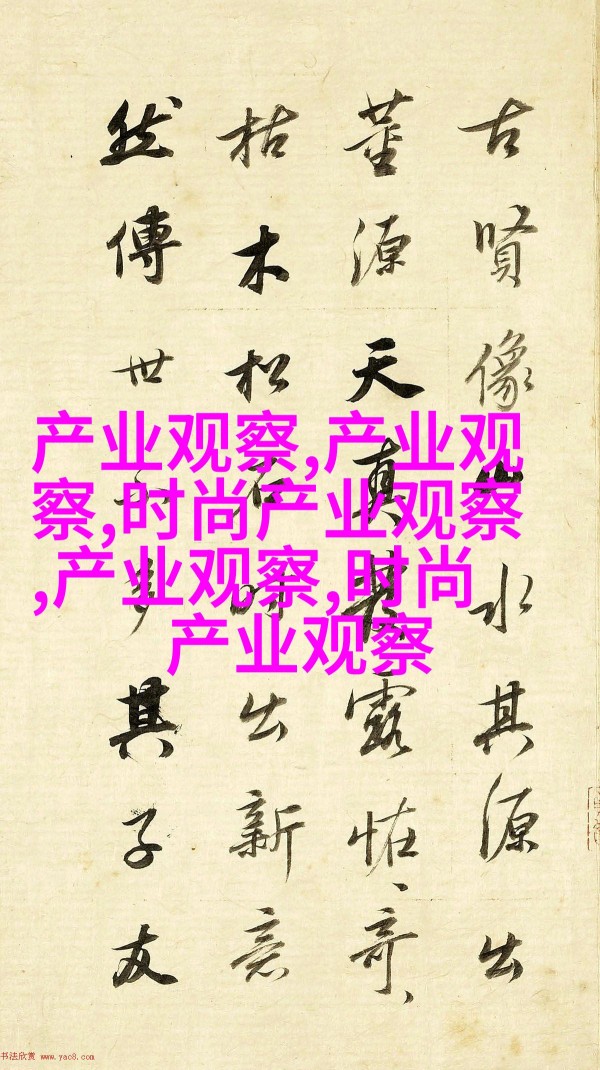 古賢像山水其源出
董源天真露恠、奇、
枯木松石時出新意
然傳世不多其子友
产业观察,产业观
察,时尚产业观察
,产业观察,时尚
产业观察
书法欣赏 www.yac8.com